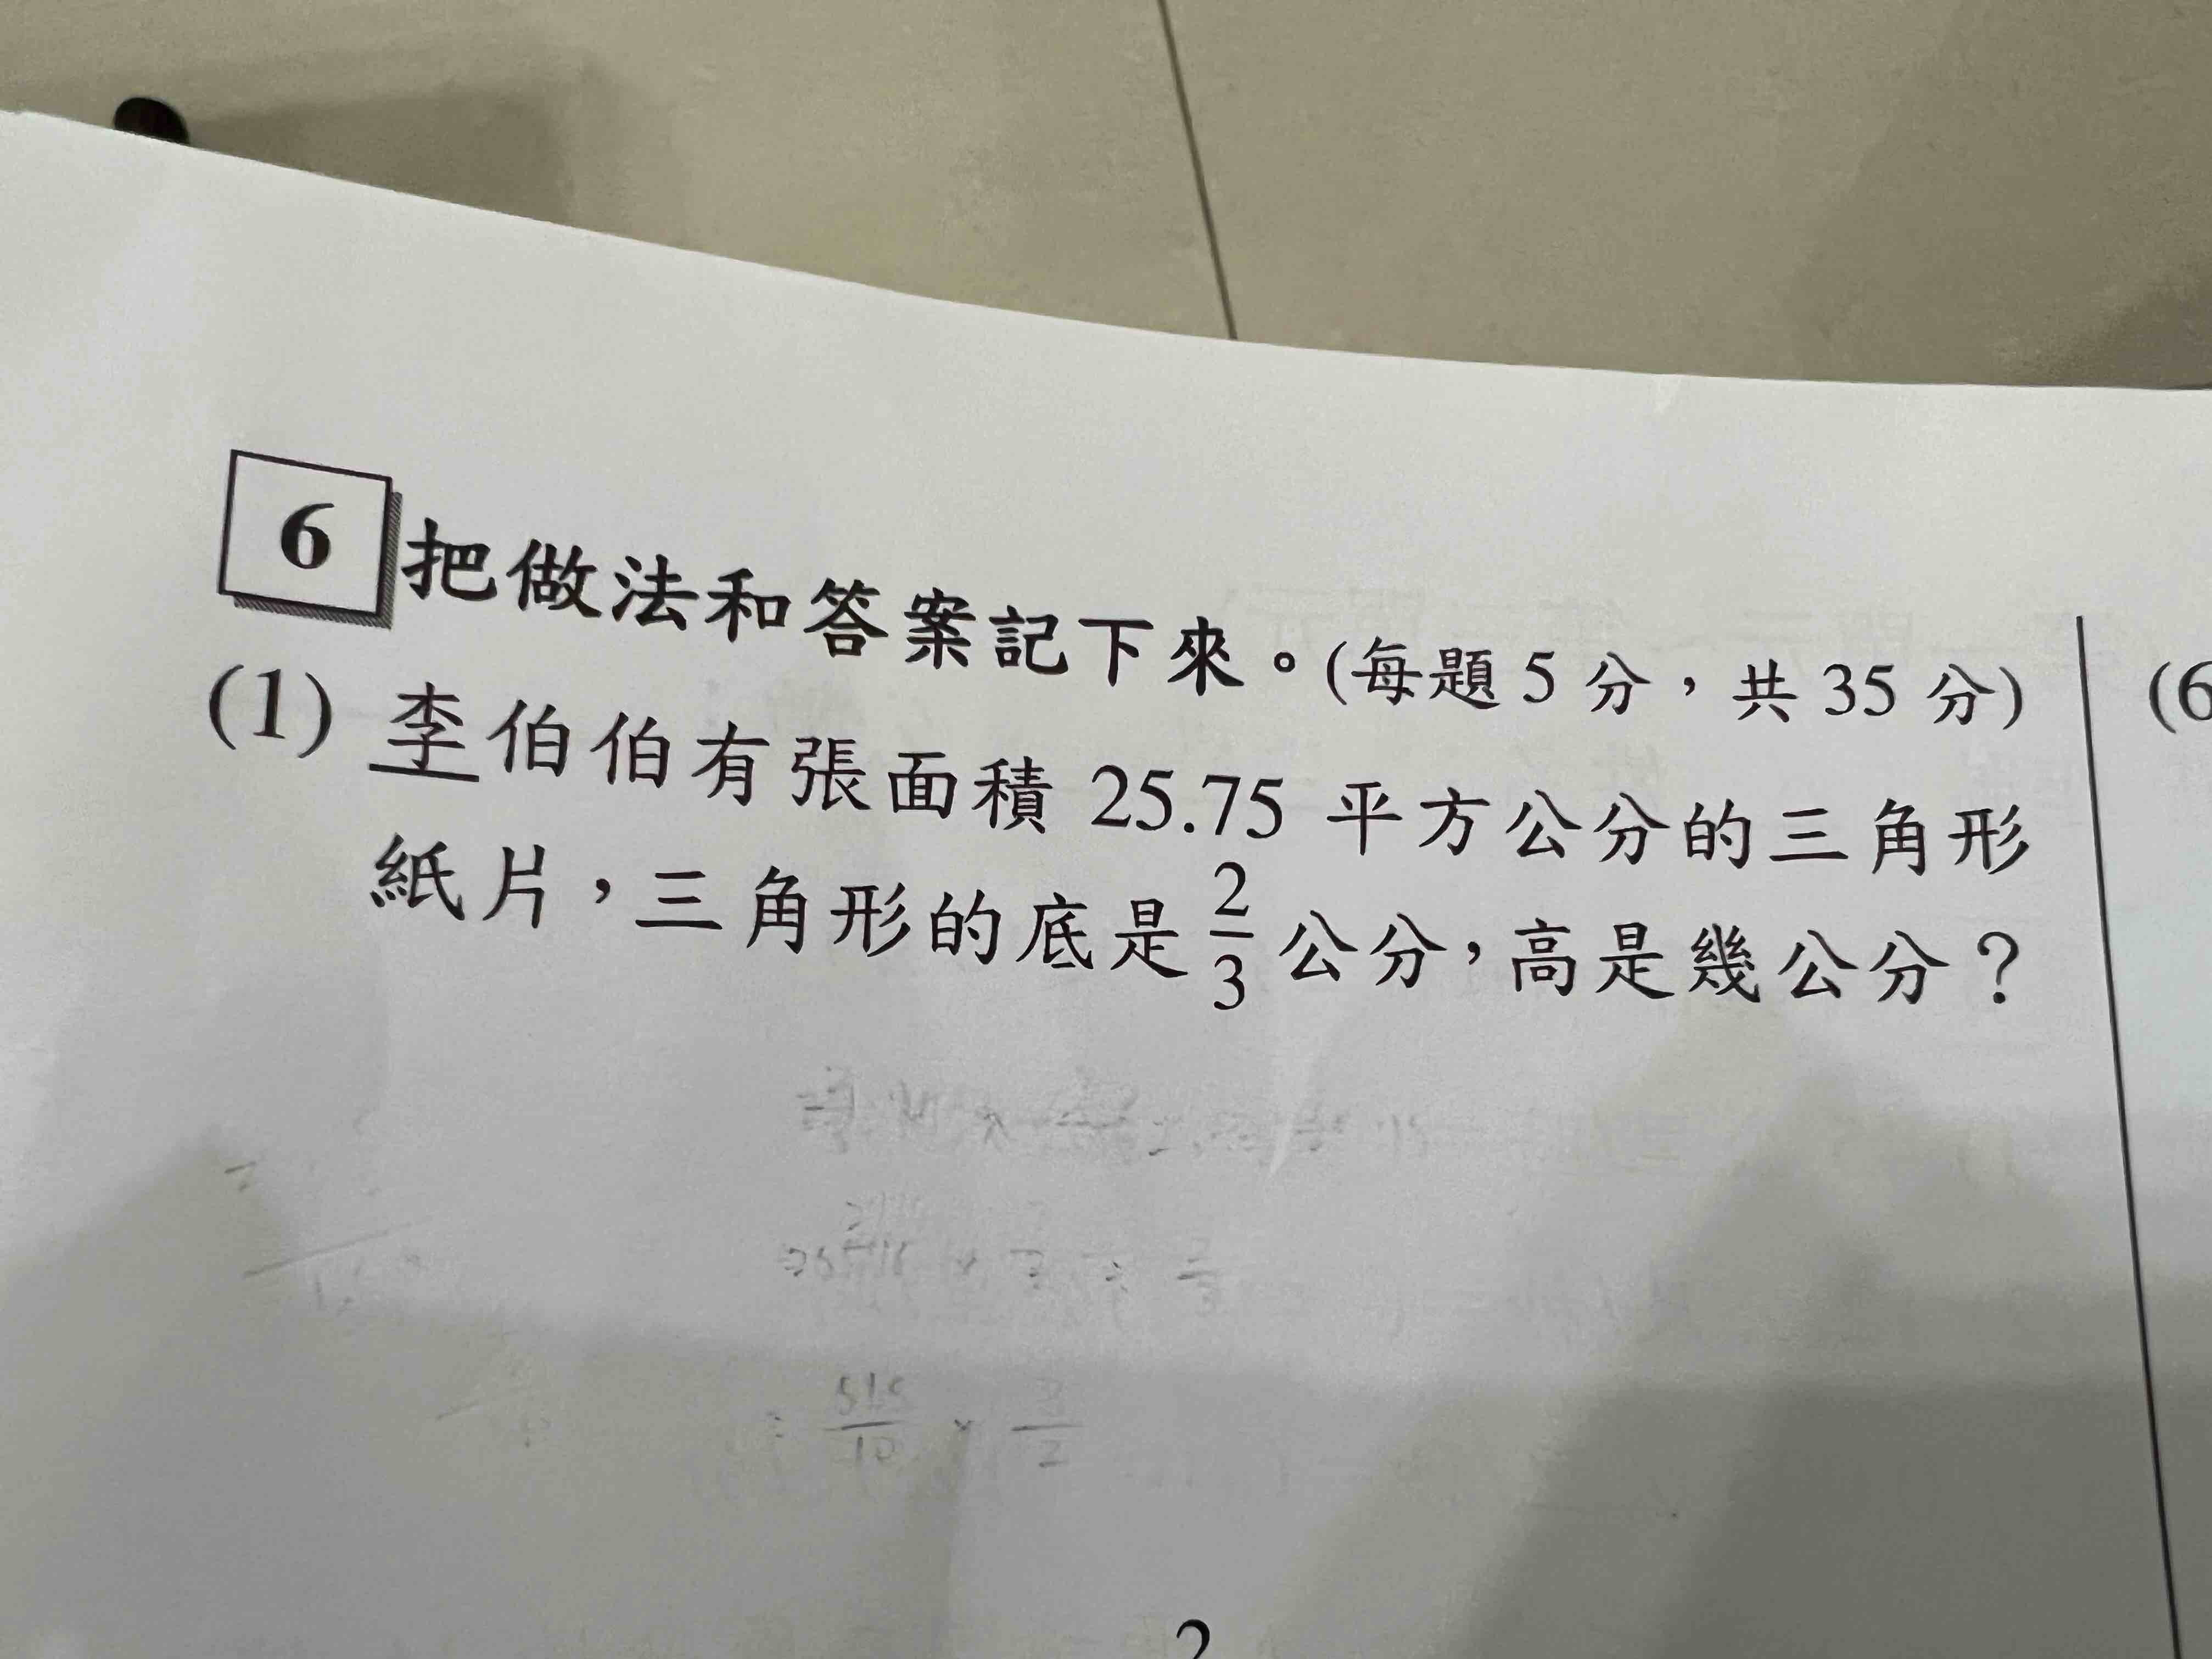 6 把做法和答案記下來。(每題 5 分，共 35 分)
(1) 李伯伯有張面積 25.75 平方公分的三角形
紙片，三角形的底是 2/3 公分，高是幾公分？
515/10 × 3/2
2
(6